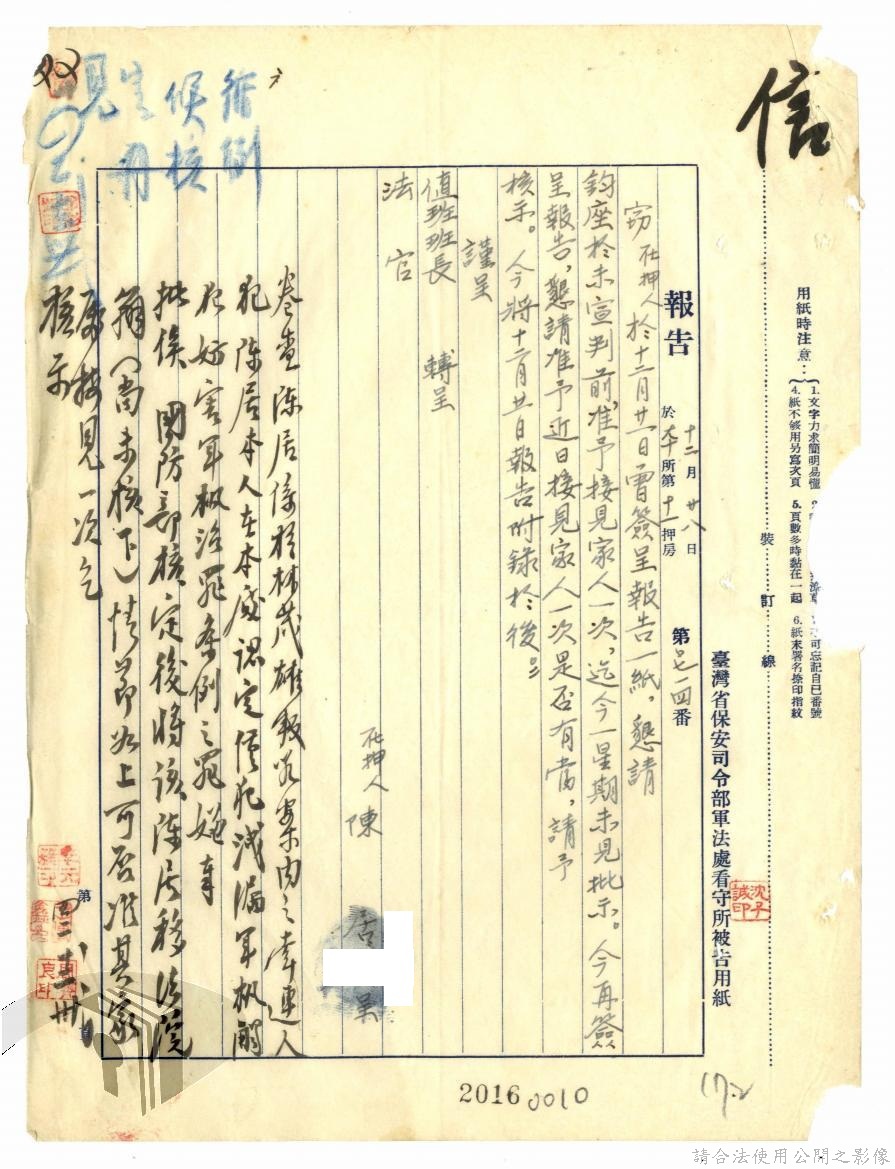 信
用紙時注意：
1.文字力求簡明易懂
4.紙不够用另寫次頁 5.頁數多時黏在一起 6.紙末署名捺印指紋
可忘記自己番號
裝訂線
臺灣省保安司令部軍法處看守所被告用紙
沈子誠印
報告 十二月廿八日
於 所第十一押房 第七一四番
竊在押人於十二月廿一日曾簽呈報告一紙，懇請
鈞座於未宣判前，准予接見家人一次，迄今一星期未見批示。今再簽
呈報告，懇請准予近日接見家人一次是否有當，請予
核示。今將十二月廿一日報告附錄於後。
謹呈
值班班長 轉呈
法官
在押人 陳 居 呈
卷查陳居係於林茂雄叛亂案內之牽連人
犯陳居本人在本處認定僅犯洩漏軍機
犯妨害軍機治罪條例之罪嫌
批俟國防部核定後將該陳居移法院
(尚未核下)情節如上可否准其家
屬接見一次乞
核示
循例
候核
見
第
2016 0010
請合法使用公開之影像